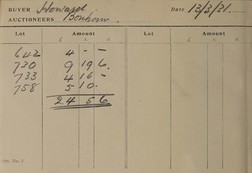 BUYER Howard Date 13/3/21.
AUCTIONEERS Bonham.
Lot Amount Lot Amount
642 4 - -
730 9 19 6.
733 4 16 -
758 5 10.
24 5 6